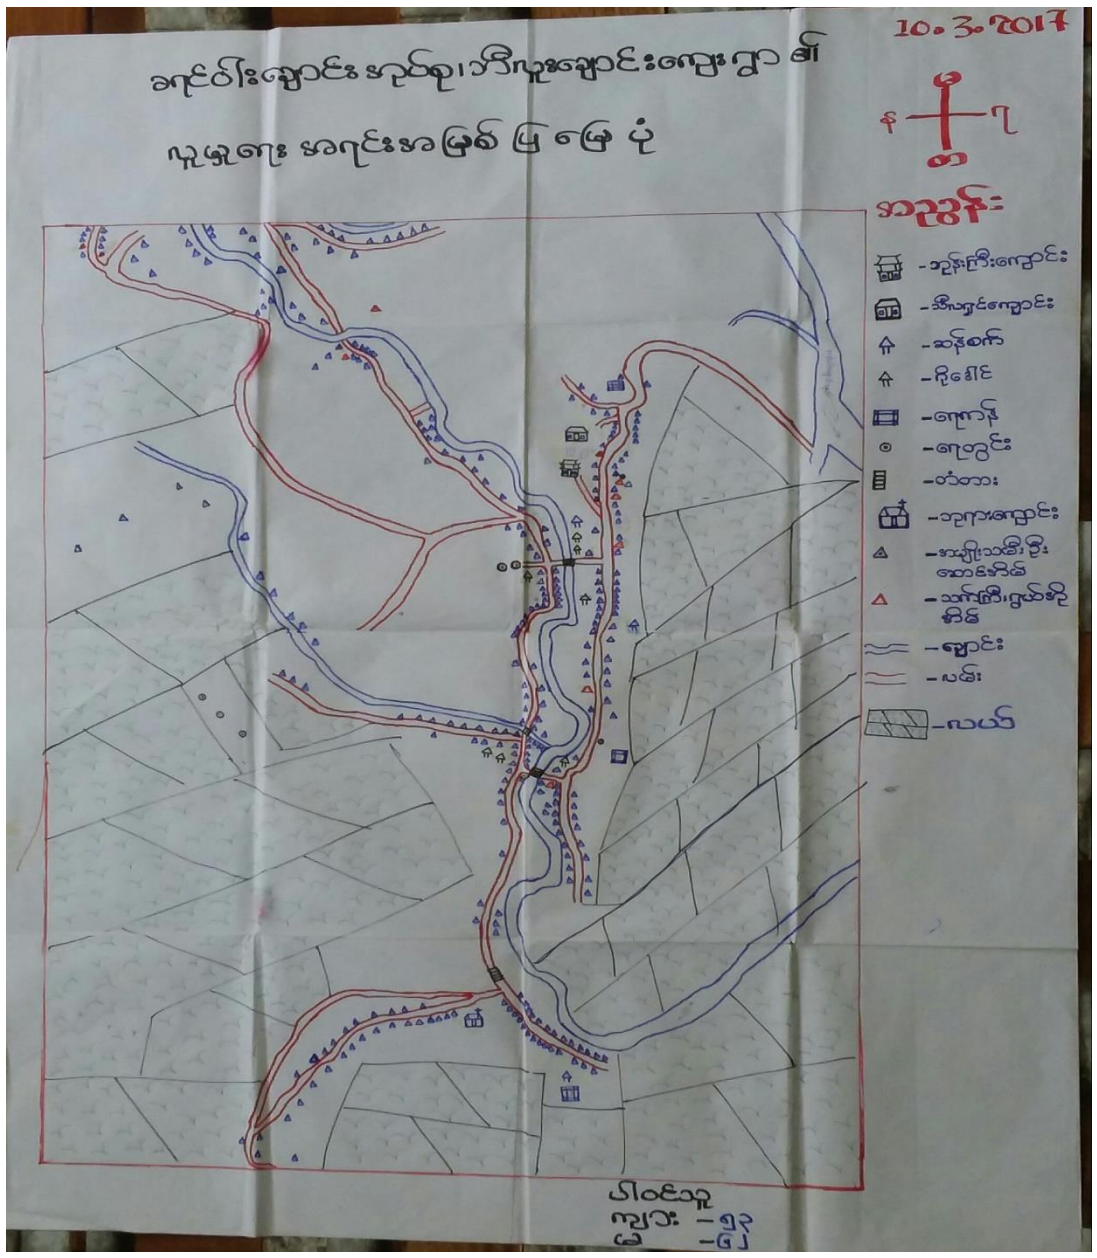 10.3.2017
ခရင်ဝါးချောင်းအုပ်စု၊ ဘီလူးချောင်းကျေးရွာ ၏
လူမှုရေး အရင်းအမြစ် ပြ မြေ ပုံ
မ
န
ရ
တ
အညွှန်း
-ဘုန်းကြီးကျောင်း
-သီလရှင်ကျောင်း
-ဆန်စက်
-ဂိုဒေါင်
-ရေကန်
-ရေတွင်း
-တံတား
-ဘုရားကျောင်း
-အမျိုးသမီးဦး
ဆောင်အိမ်
-သက်ကြီးရွယ်အို
အိမ်
-ချောင်း
-လမ်း
-လယ်
ပါဝင်သူ
ကျား -၅၃
မ -၆၂